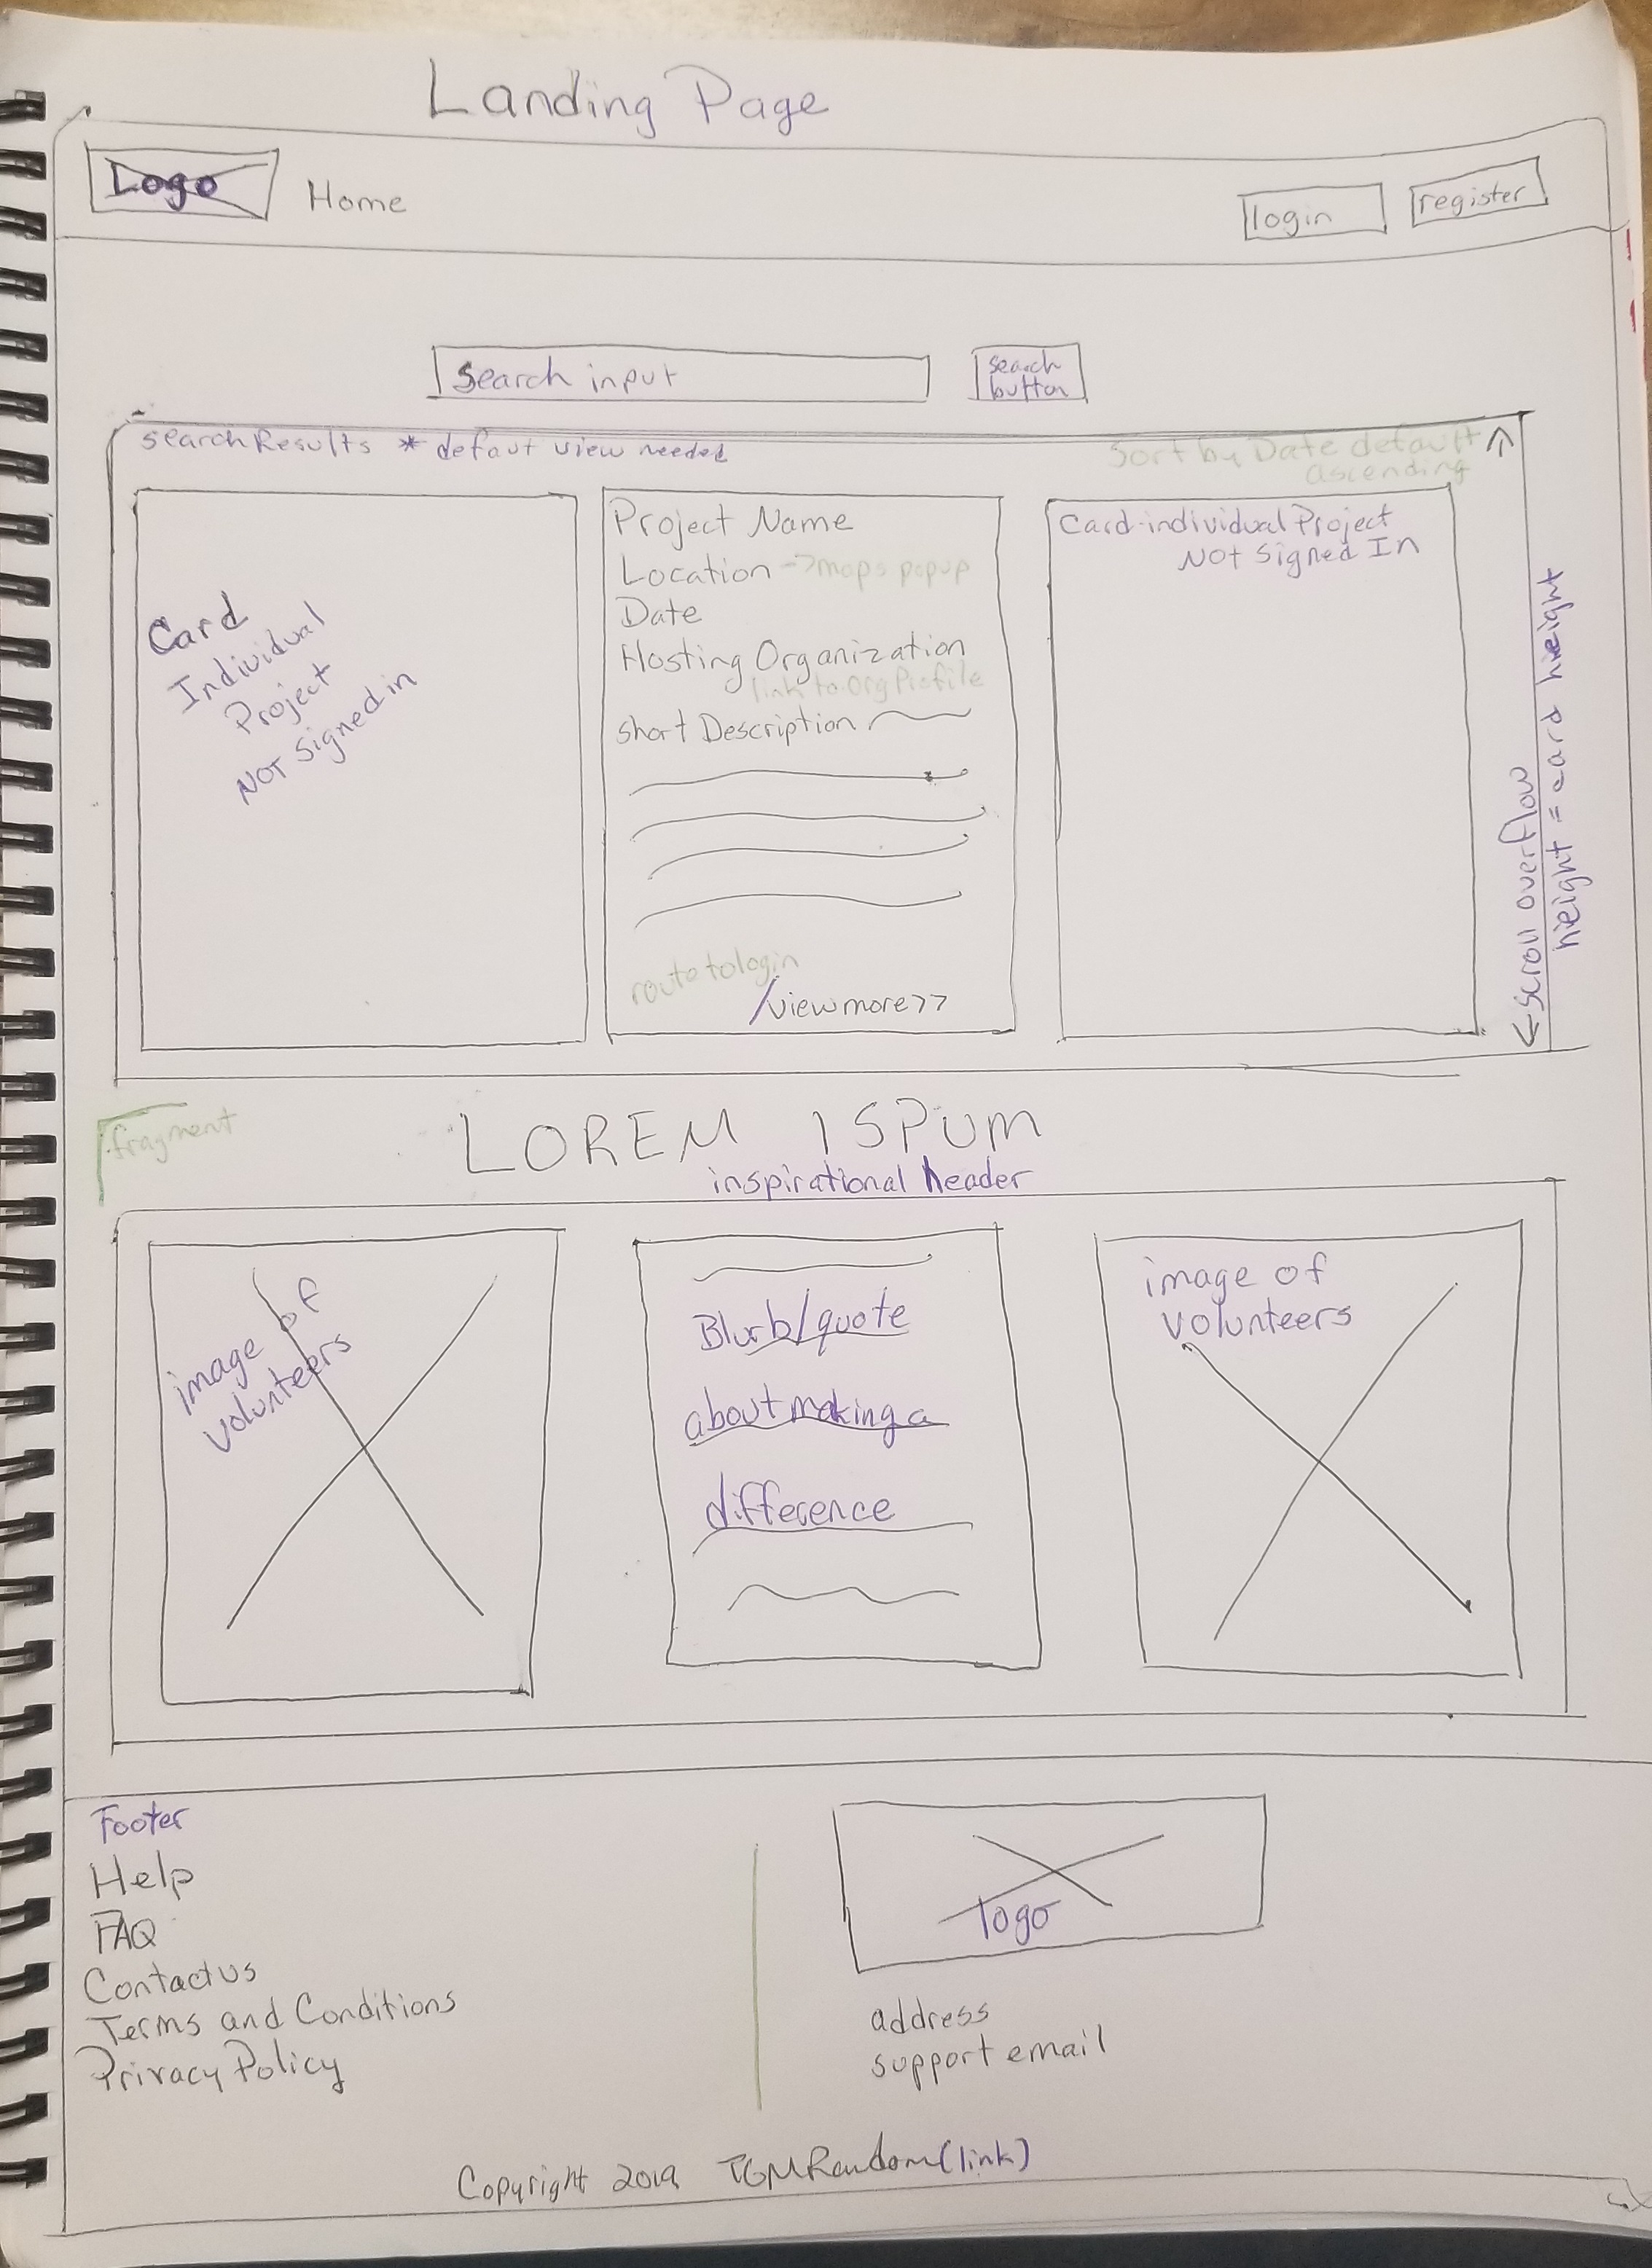 Landing Page
Logo
Home
login
register
search input
search
button
searchResults * defaut view needed
Sort by Date default
ascending
Card
Individual
Project
NOT Signed in
Project Name
Location -> maps popup
Date
Hosting Organization
link to Org Profile
short Description
route to login
/viewmore>>
Card-individual Project
NOT Signed In
scroll overflow
hieight = card hieight
fragment
LOREM ISPUM
inspirational header
image of
volunteers
Blurb/quote
about making a
difference
image of
volunteers
Footer
Help
FAQ
Contact us
Terms and Conditions
Privacy Policy
logo
address
support email
Copyright 2019 TGMRandom(link)